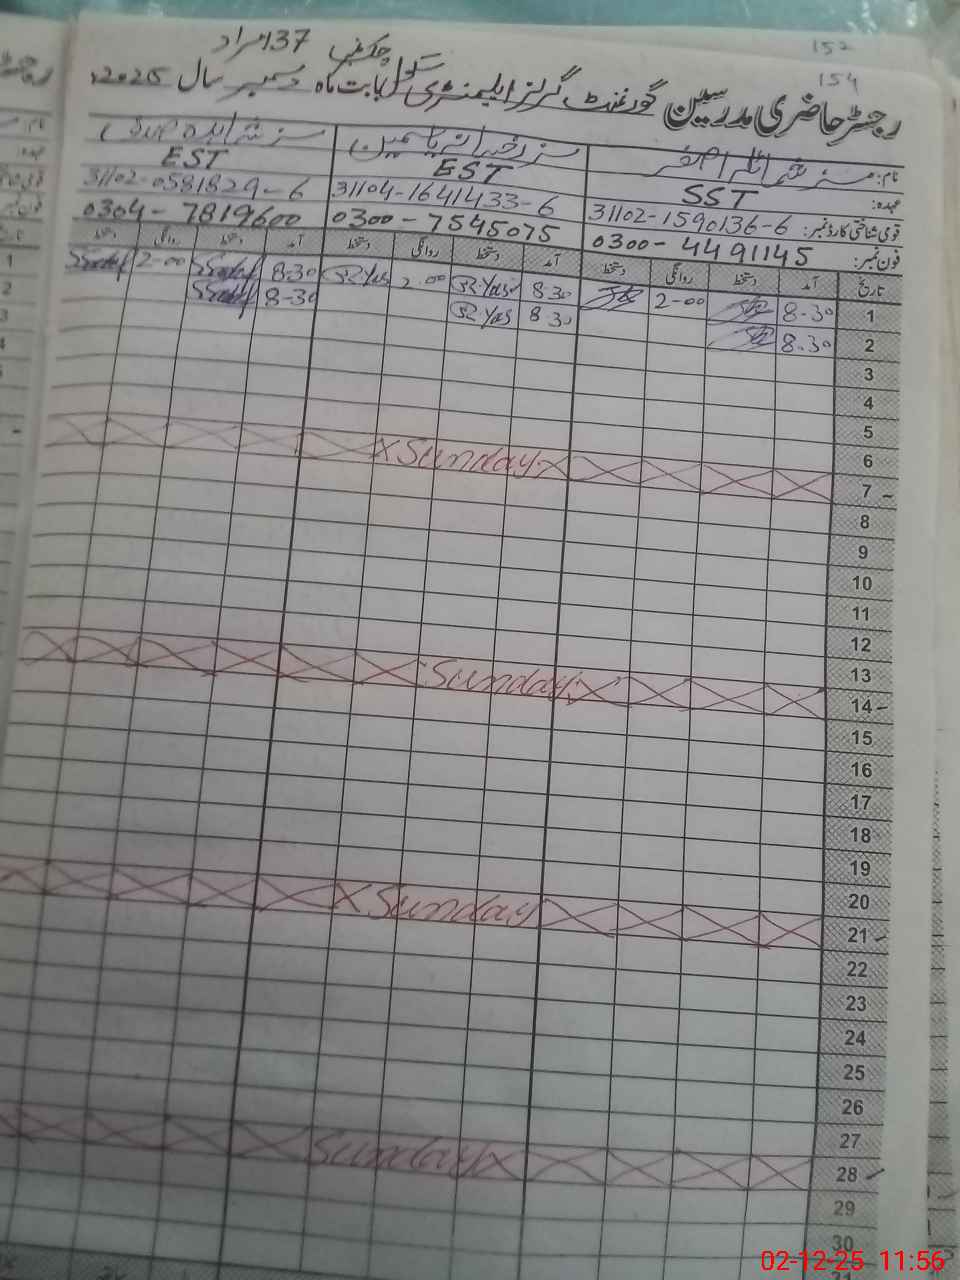 152
154
137 مراد
رجسٹر حاضری مدرسین گورنمنٹ گرلز ایلیمنٹری سکول بابت ماہ دسمبر سال 2025ء
نام: مسز
مسز رخسانہ یاسمین
مسز
عہدہ: SST
EST
EST
قومی شناختی کارڈ نمبر: 31102-1590136-6
31104-1641433-6
31102-0581829-6
فون نمبر: 0300-4491145
0300-7545075
0304-7819600
تاریخ آمد دستخط روانگی دستخط آمد دستخط روانگی دستخط آمد دستخط روانگی دستخط
1 8-30 2-00 8-30 SR.Yas 2-00 SR.Yas 8-30 2-00
2 8-30 8-30 SR.Yas 8-30
3
4
5
6
7 Sunday
8
9
10
11
12
13
14 Sunday
15
16
17
18
19
20
21 Sunday
22
23
24
25
26
27
28 Sunday
29
30
02-12-25 11:56